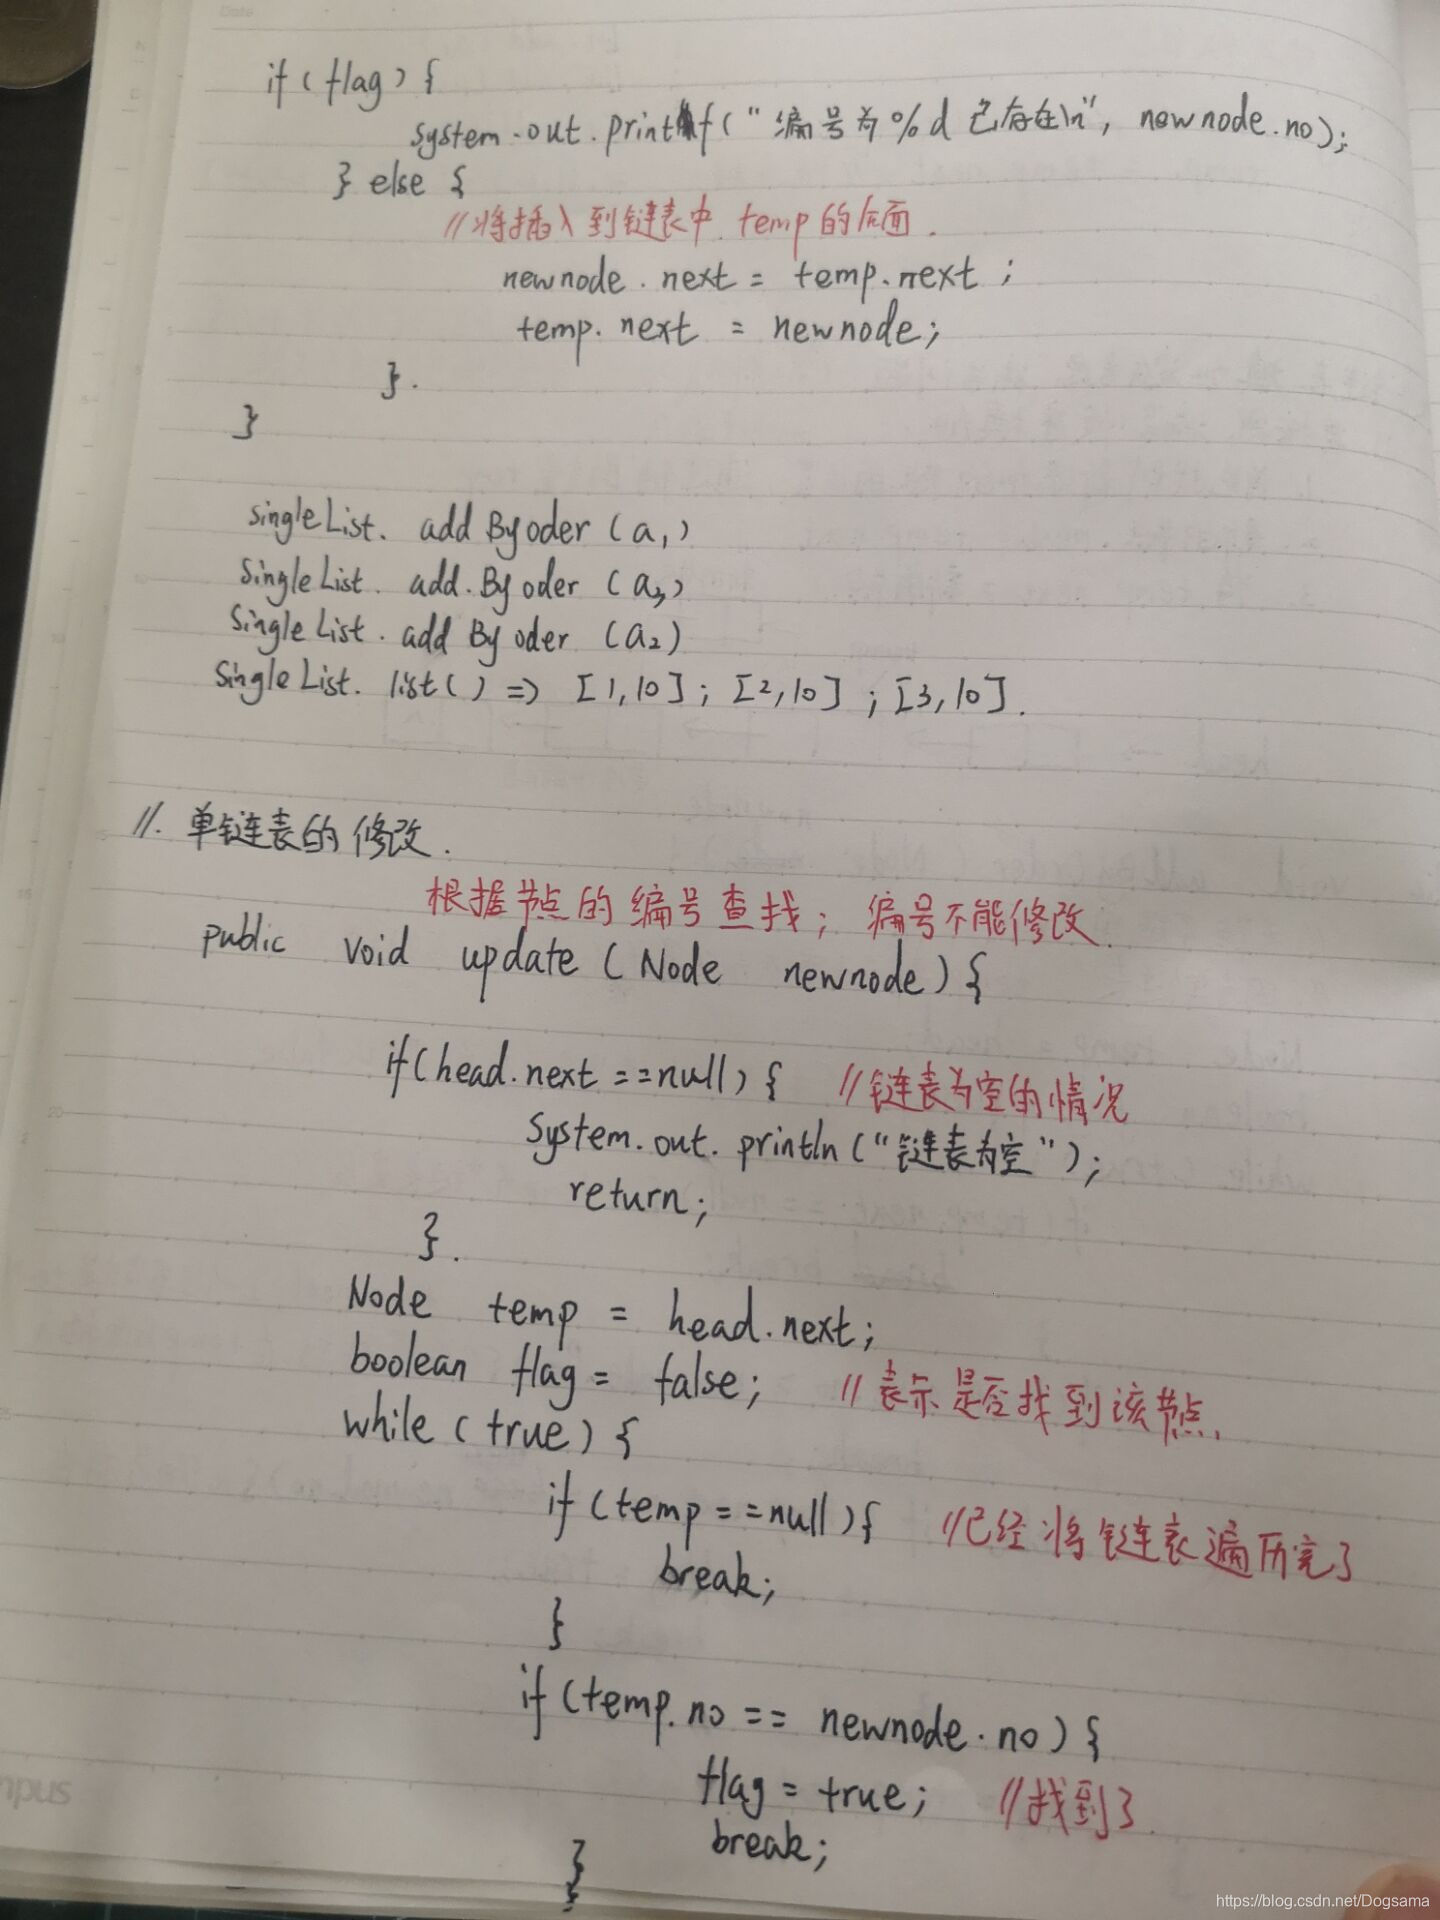 Date
if(flag){
system.out.printf("编号为%d已存在\n", newnode.no);
} else {
//将插入到链表中 temp的后面.
newnode.next = temp.next ;
temp.next = newnode;
}.
}
singleList. addByoder (a1)
SingleList. add.Byoder (a3)
SingleList. addByoder (a2)
SingleList. list() => [1,10]; [2,10] ; [3,10].
//. 单链表的修改.
根据节点的编号查找; 编号不能修改.
public void update (Node newnode){
if(head.next ==null){ //链表为空的情况
System.out.println("链表为空");
return;
}.
Node temp = head.next;
boolean flag = false; //表示是否找到该节点.
while (true){
if(temp==null){ //已经将链表遍历完了
break;
}
if(temp.no == newnode.no){
flag = true; //找到了.
break;
}
}
https://blog.csdn.net/Dogsama